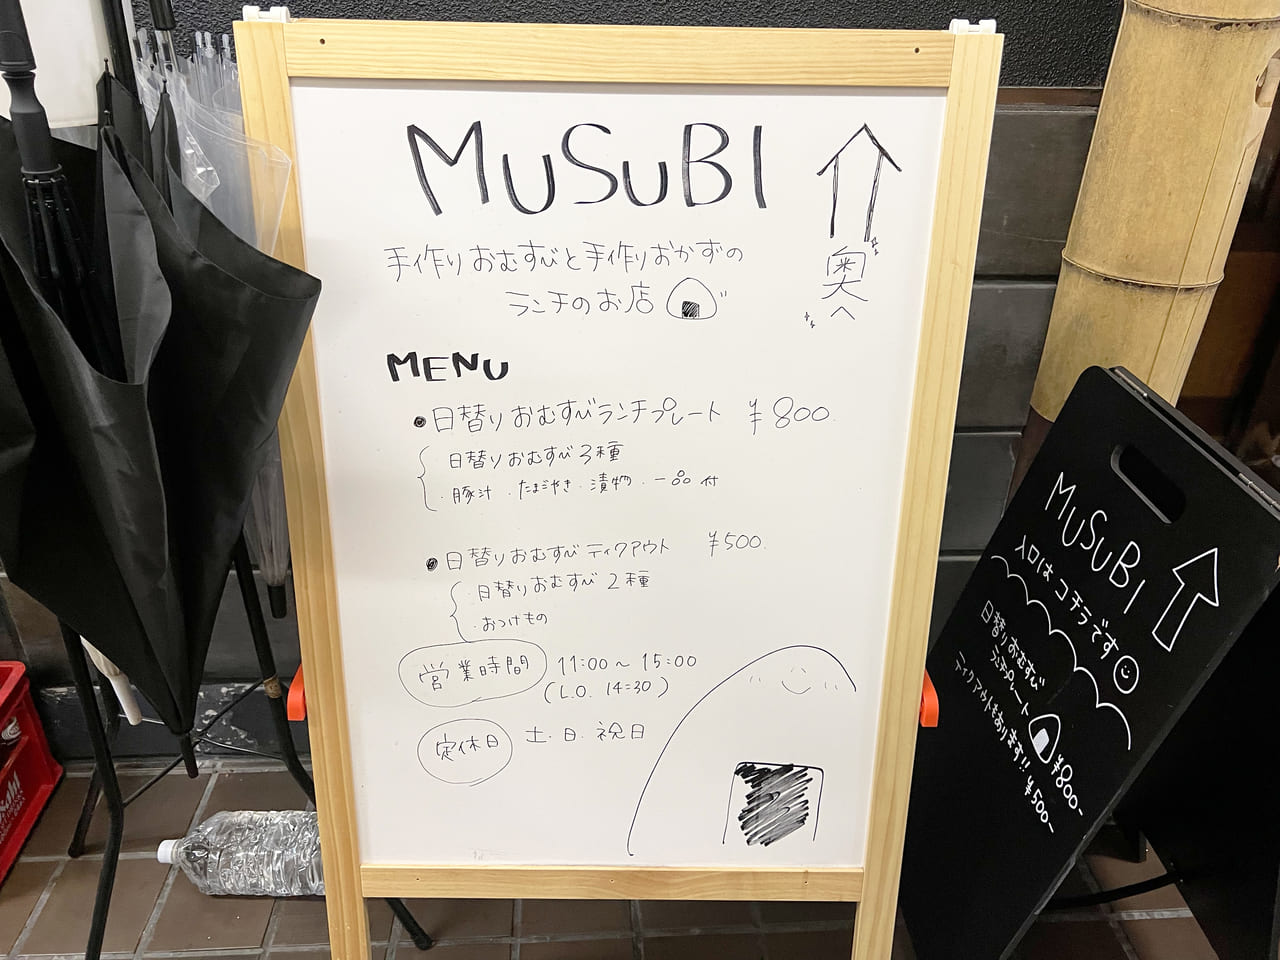 MUSUBI
手作りおむすびと手作りおかずの
ランチのお店
奥へ
MENU
●日替りおむすびランチプレート ¥800.
日替りおむすび3種
・豚汁・たまごやき・漬物・一品付
●日替りおむすびティクアウト ¥500.
・日替りおむすび2種
・おつけもの
営業時間 11:00〜15:00
(L.O. 14:30)
定休日 土・日・祝日
MUSUBI
入口はコチラです
日替りおむすび
ランチプレート ¥800-
ティクアウトもあります!! ¥500-
Asahi